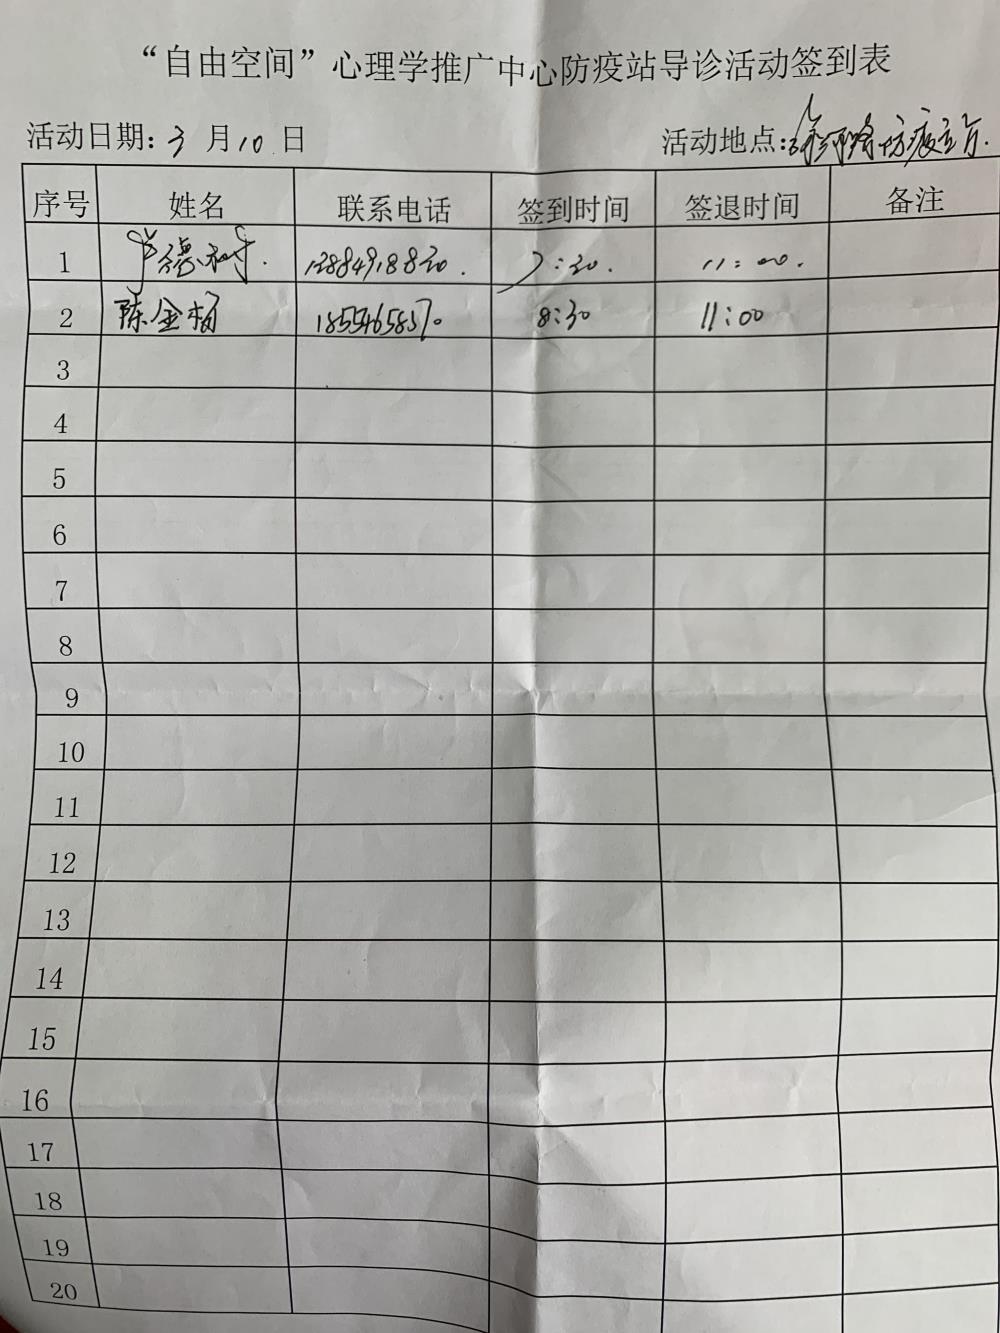 “自由空间”心理学推广中心防疫站导诊活动签到表
活动日期: 3 月 10 日 活动地点: 防疫
序号 姓名 联系电话 签到时间 签退时间 备注
1 德 13884918830. 7:30. 11:00.
2 陈金杨 8:30 11:00
3
4
5
6
7
8
9
10
11
12
13
14
15
16
17
18
19
20